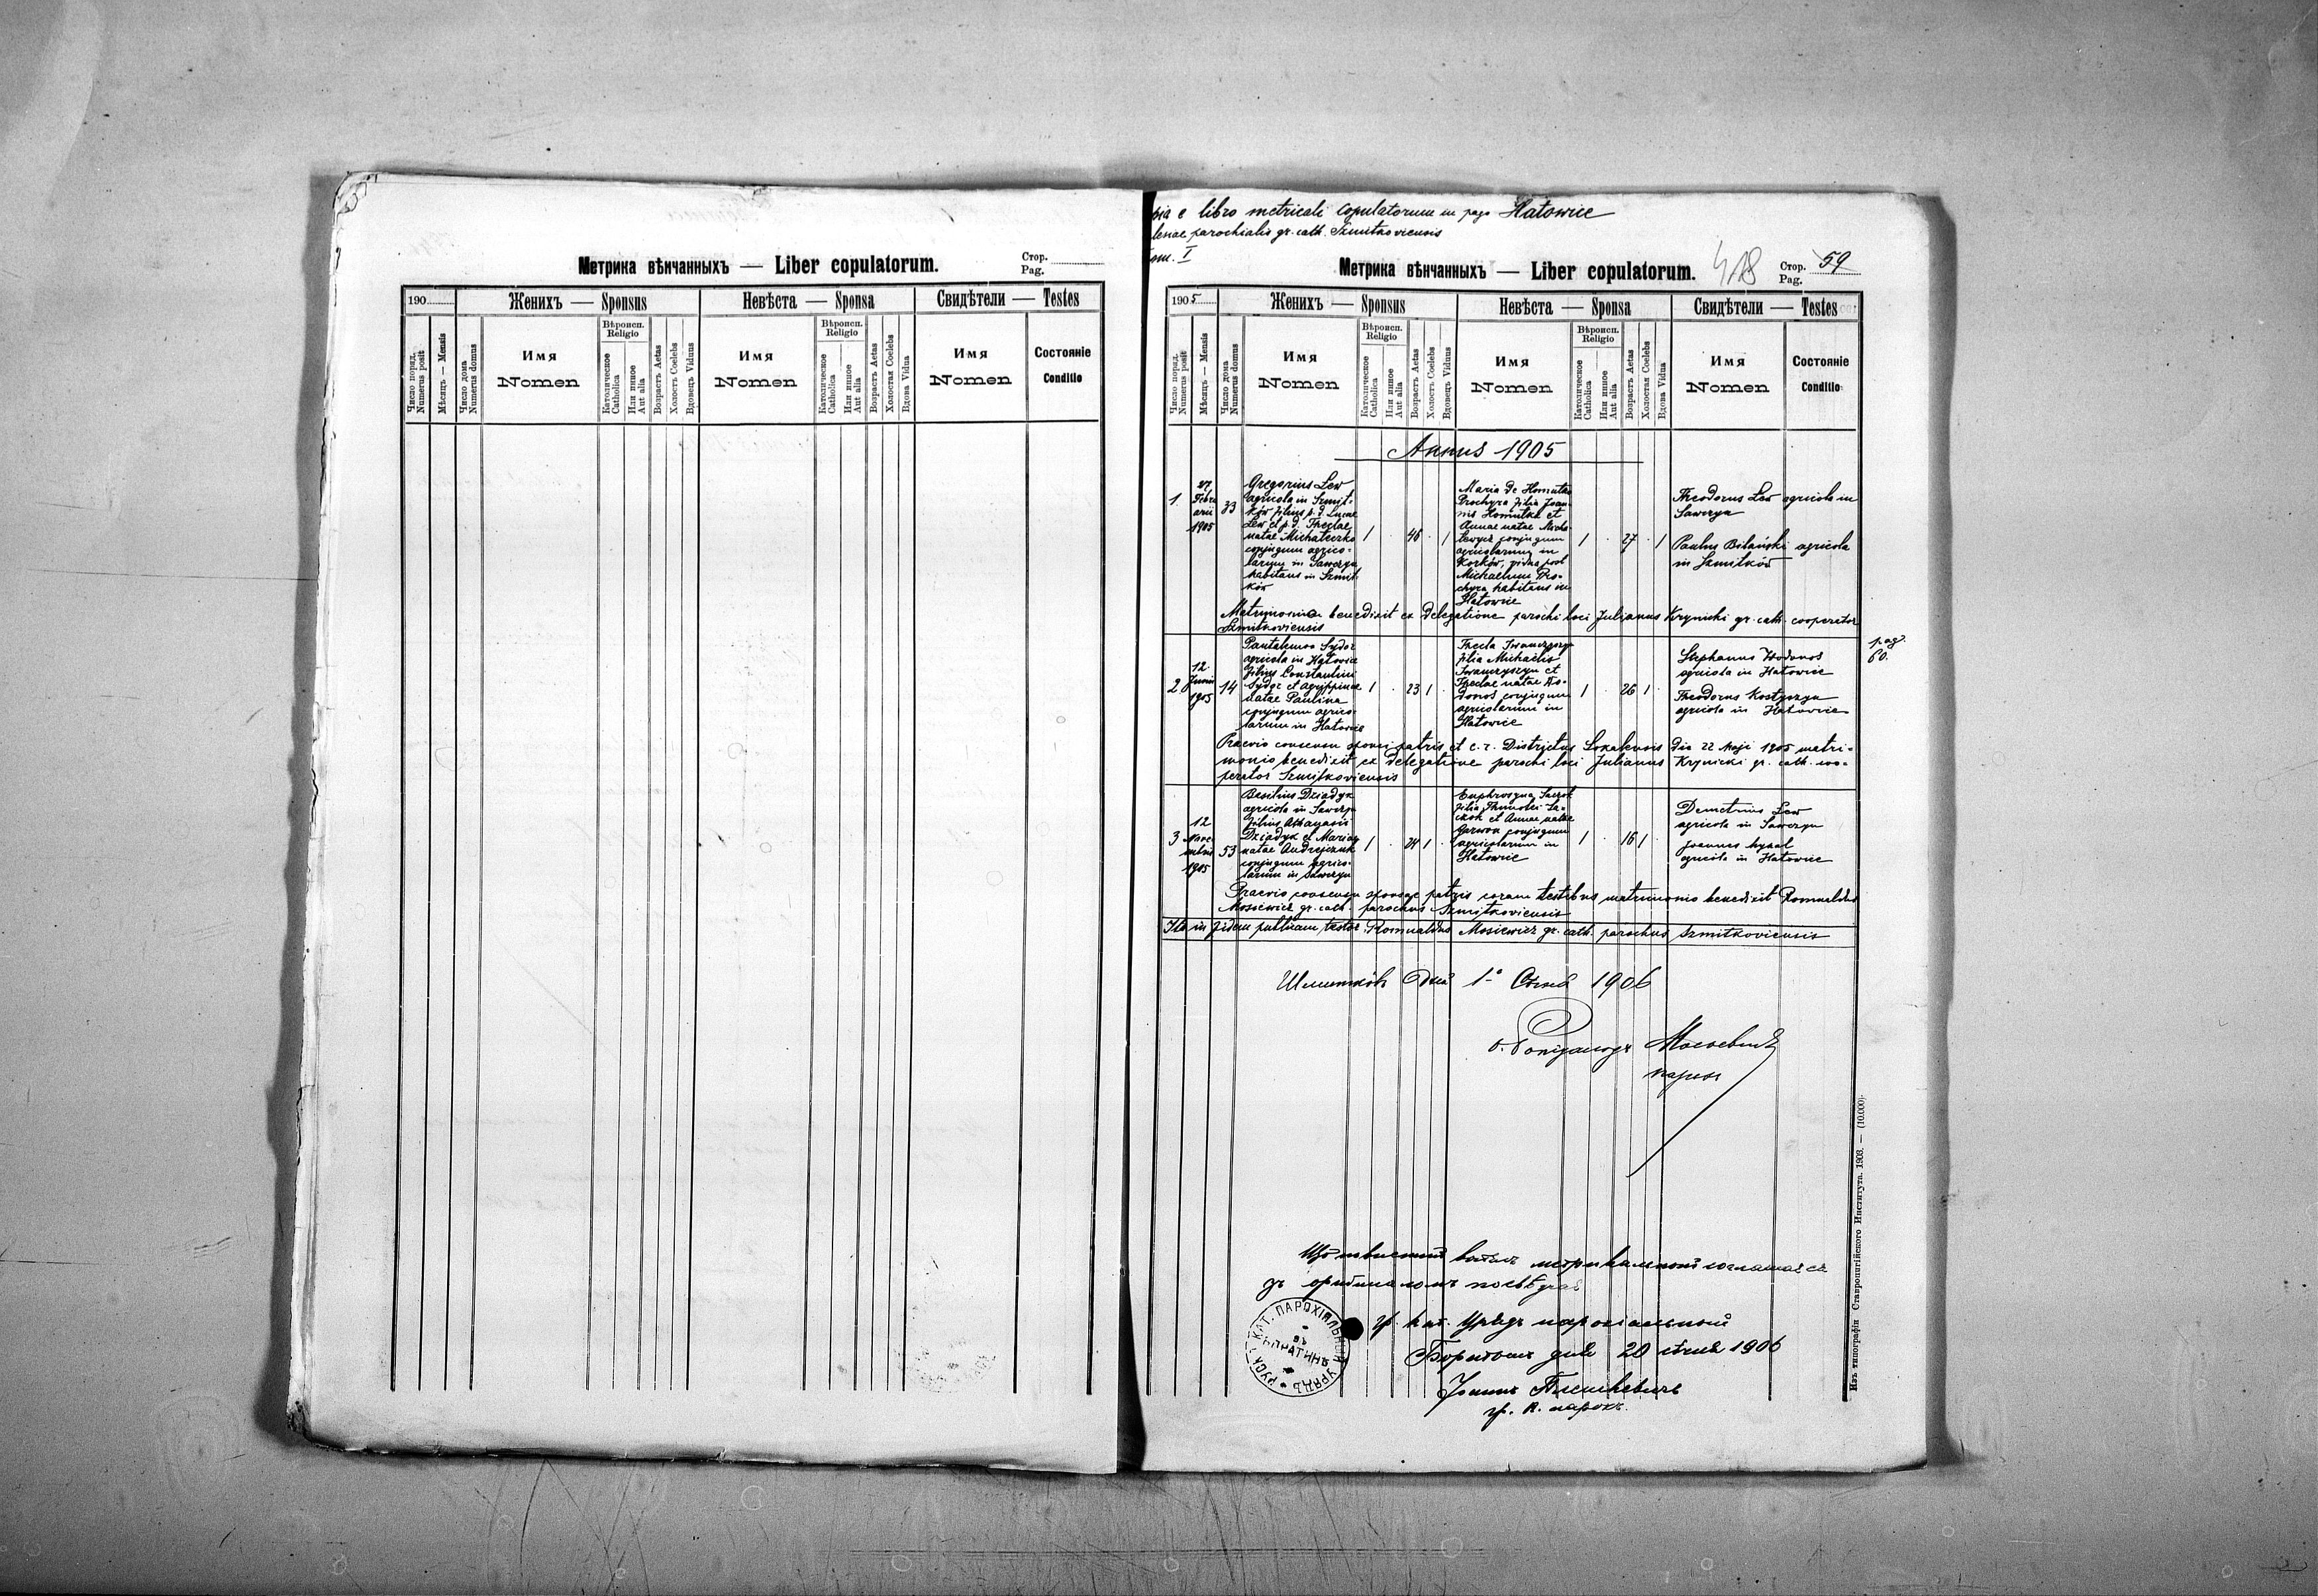 Метрика вѣнчанныхъ — Liber copulatorum.
Стор.
Pag.
190
Женихъ — Sponsus
Невѣста — Sponsa
Свидѣтели — Testes
Число поряд.
Numerus posit
Мѣсяцъ — Mensis
Число дома
Numerus domus
Имя
Nomen
Вѣроисп.
Religio
Католическое
Catholica
Или иное
Aut alia
Возрастъ Aetas
Холостъ Coelebs
Вдовецъ Viduus
Имя
Nomen
Вѣроисп.
Religio
Католическое
Catholica
Или иное
Aut alia
Возрастъ Aetas
Холостая Coelebs
Вдова Vidua
Имя
Nomen
Состояніе
Conditio
pia e libro metricali copulatorum in pago Hatowice
parochialis gr. cath. Szmitkoviensis
om. I
Метрика вѣнчанныхъ — Liber copulatorum.
418
Стор. 59
Pag.
1905
Женихъ — Sponsus
Невѣста — Sponsa
Свидѣтели — Testes
Число поряд.
Numerus posit
Мѣсяцъ — Mensis
Число дома
Numerus domus
Имя
Nomen
Вѣроисп.
Religio
Католическое
Catholica
Или иное
Aut alia
Возрастъ Aetas
Холостъ Coelebs
Вдовецъ Viduus
Имя
Nomen
Вѣроисп.
Religio
Католическое
Catholica
Или иное
Aut alia
Возрастъ Aetas
Холостая Coelebs
Вдова Vidua
Имя
Nomen
Состояніе
Conditio
Annus 1905
1
27
Febru
arii
1905
33
Gregorius Lew
agricola in Szmit-
ków filius p. d. Lucae
Lew et p. d. Theclae
natae Michaleczko
conjugum agrico-
larum in Sawczyn
habitans in Szmit-
ków
1 . 46 . 1
Maria de Homutka
Prochyra filia Joan-
nis Homutka et
Annae natae Micha-
lewycz conjugum
agricolarum in
Korków, vidua post
Michaelem Pro-
chyra habitans in
Hatowice
1 . 27 . 1
Theodorus Lew agricola in
Sawczyn
Paulus Bilański agricola
in Szmitków
Matrimonio benedixit ex delegatione parochi loci Julianus Krynicki gr. cath. cooperator
Szmitkoviensis
2
12
Junii
1905
14
Pantalemon Sydor
agricola in Hatowice
filius Constantini
Sydor et Agrippinae
natae Paulina
conjugum agrico-
larum in Hatowice
1 . 23 1
Thecla Iwanczyszyn
filia Michaelis
Iwanczyszyn et
Theclae natae Wo-
donos conjugum
agricolarum in
Hatowice
1 . 26 1
Stephanus Wodonos
agricola in Hatowice
Theodorus Kostyszyn
agricola in Hatowice
pag.
60.
Praevio consensu sponsi patris et c. r. Districtus Sokalensis dia 22 Maji 1905 matri-
monio benedixit ex delegatione parochi loci Julianus Krynicki gr. cath. coo-
perator Szmitkoviensis
3
12
Nove
mbris
1905
53
Basilius Dziadyk
agricola in Sawczyn
filius Athanasii
Dziadyk et Mariae
natae Andrejczuk
conjugum agrico-
larum in Sawczyn
1 . 24 1
Euphrosyna
filia Timothei
et Annae natae
conjugum
agricolarum in
Hatowice
1 . 16 1
Demetrius Lew
agricola in Sawczyn
Joannes
agricola in Hatowice
Praevio consensu sponsae patris coram testibus matrimonio benedixit Romualdus
Mosiewicz gr. cath. parochus Szmitkoviensis
Ita in fidem publicam testor Romualdus Mosiewicz gr. cath. parochus Szmitkoviensis
Шмитковъ дня 1 Січня 1906
о. Ромуальдъ Мосевичъ
парох
метрикальный
зъ оригиналомъ
гр. кат. Урядъ парохіальный
дня 20 січня 1906
гр. к. парохъ.
РУСК. КАТ. ПАРОХІЯЛЬНЫЙ УРЯДЪ
въ
Изъ типографіи Ставропигійского Института. 1903. — (10.000).